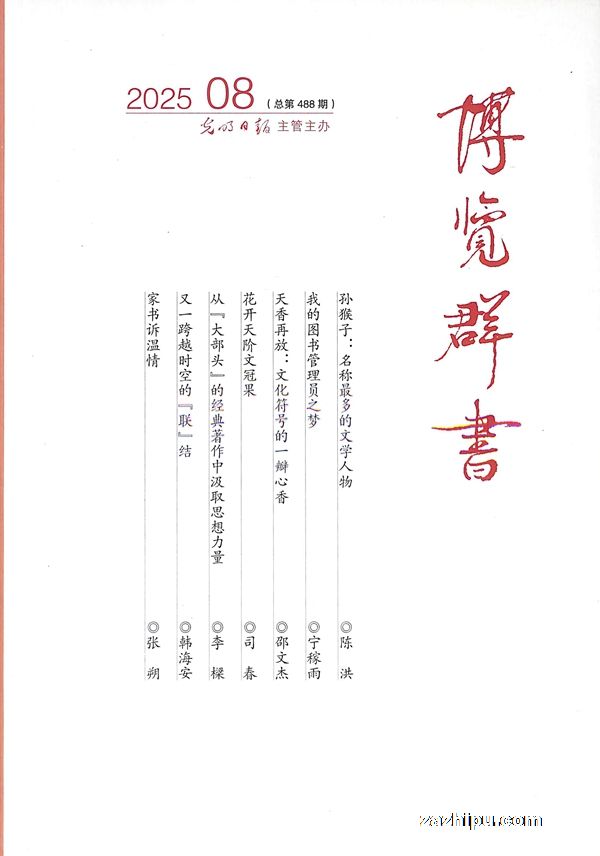 2025 08（总第 488 期）
光明日报 主管主办
博览群書
孙猴子：名称最多的文学人物 ◎陈 洪
我的图书管理员之梦 ◎宁稼雨
天香再放：文化符号的一瓣心香 ◎邵文杰
花开天阶文冠果 ◎司 春
从『大部头』的经典著作中汲取思想力量 ◎李 樑
又一跨越时空的『联』结 ◎韩海安
家书诉温情 ◎张 朔
zazhipu.com